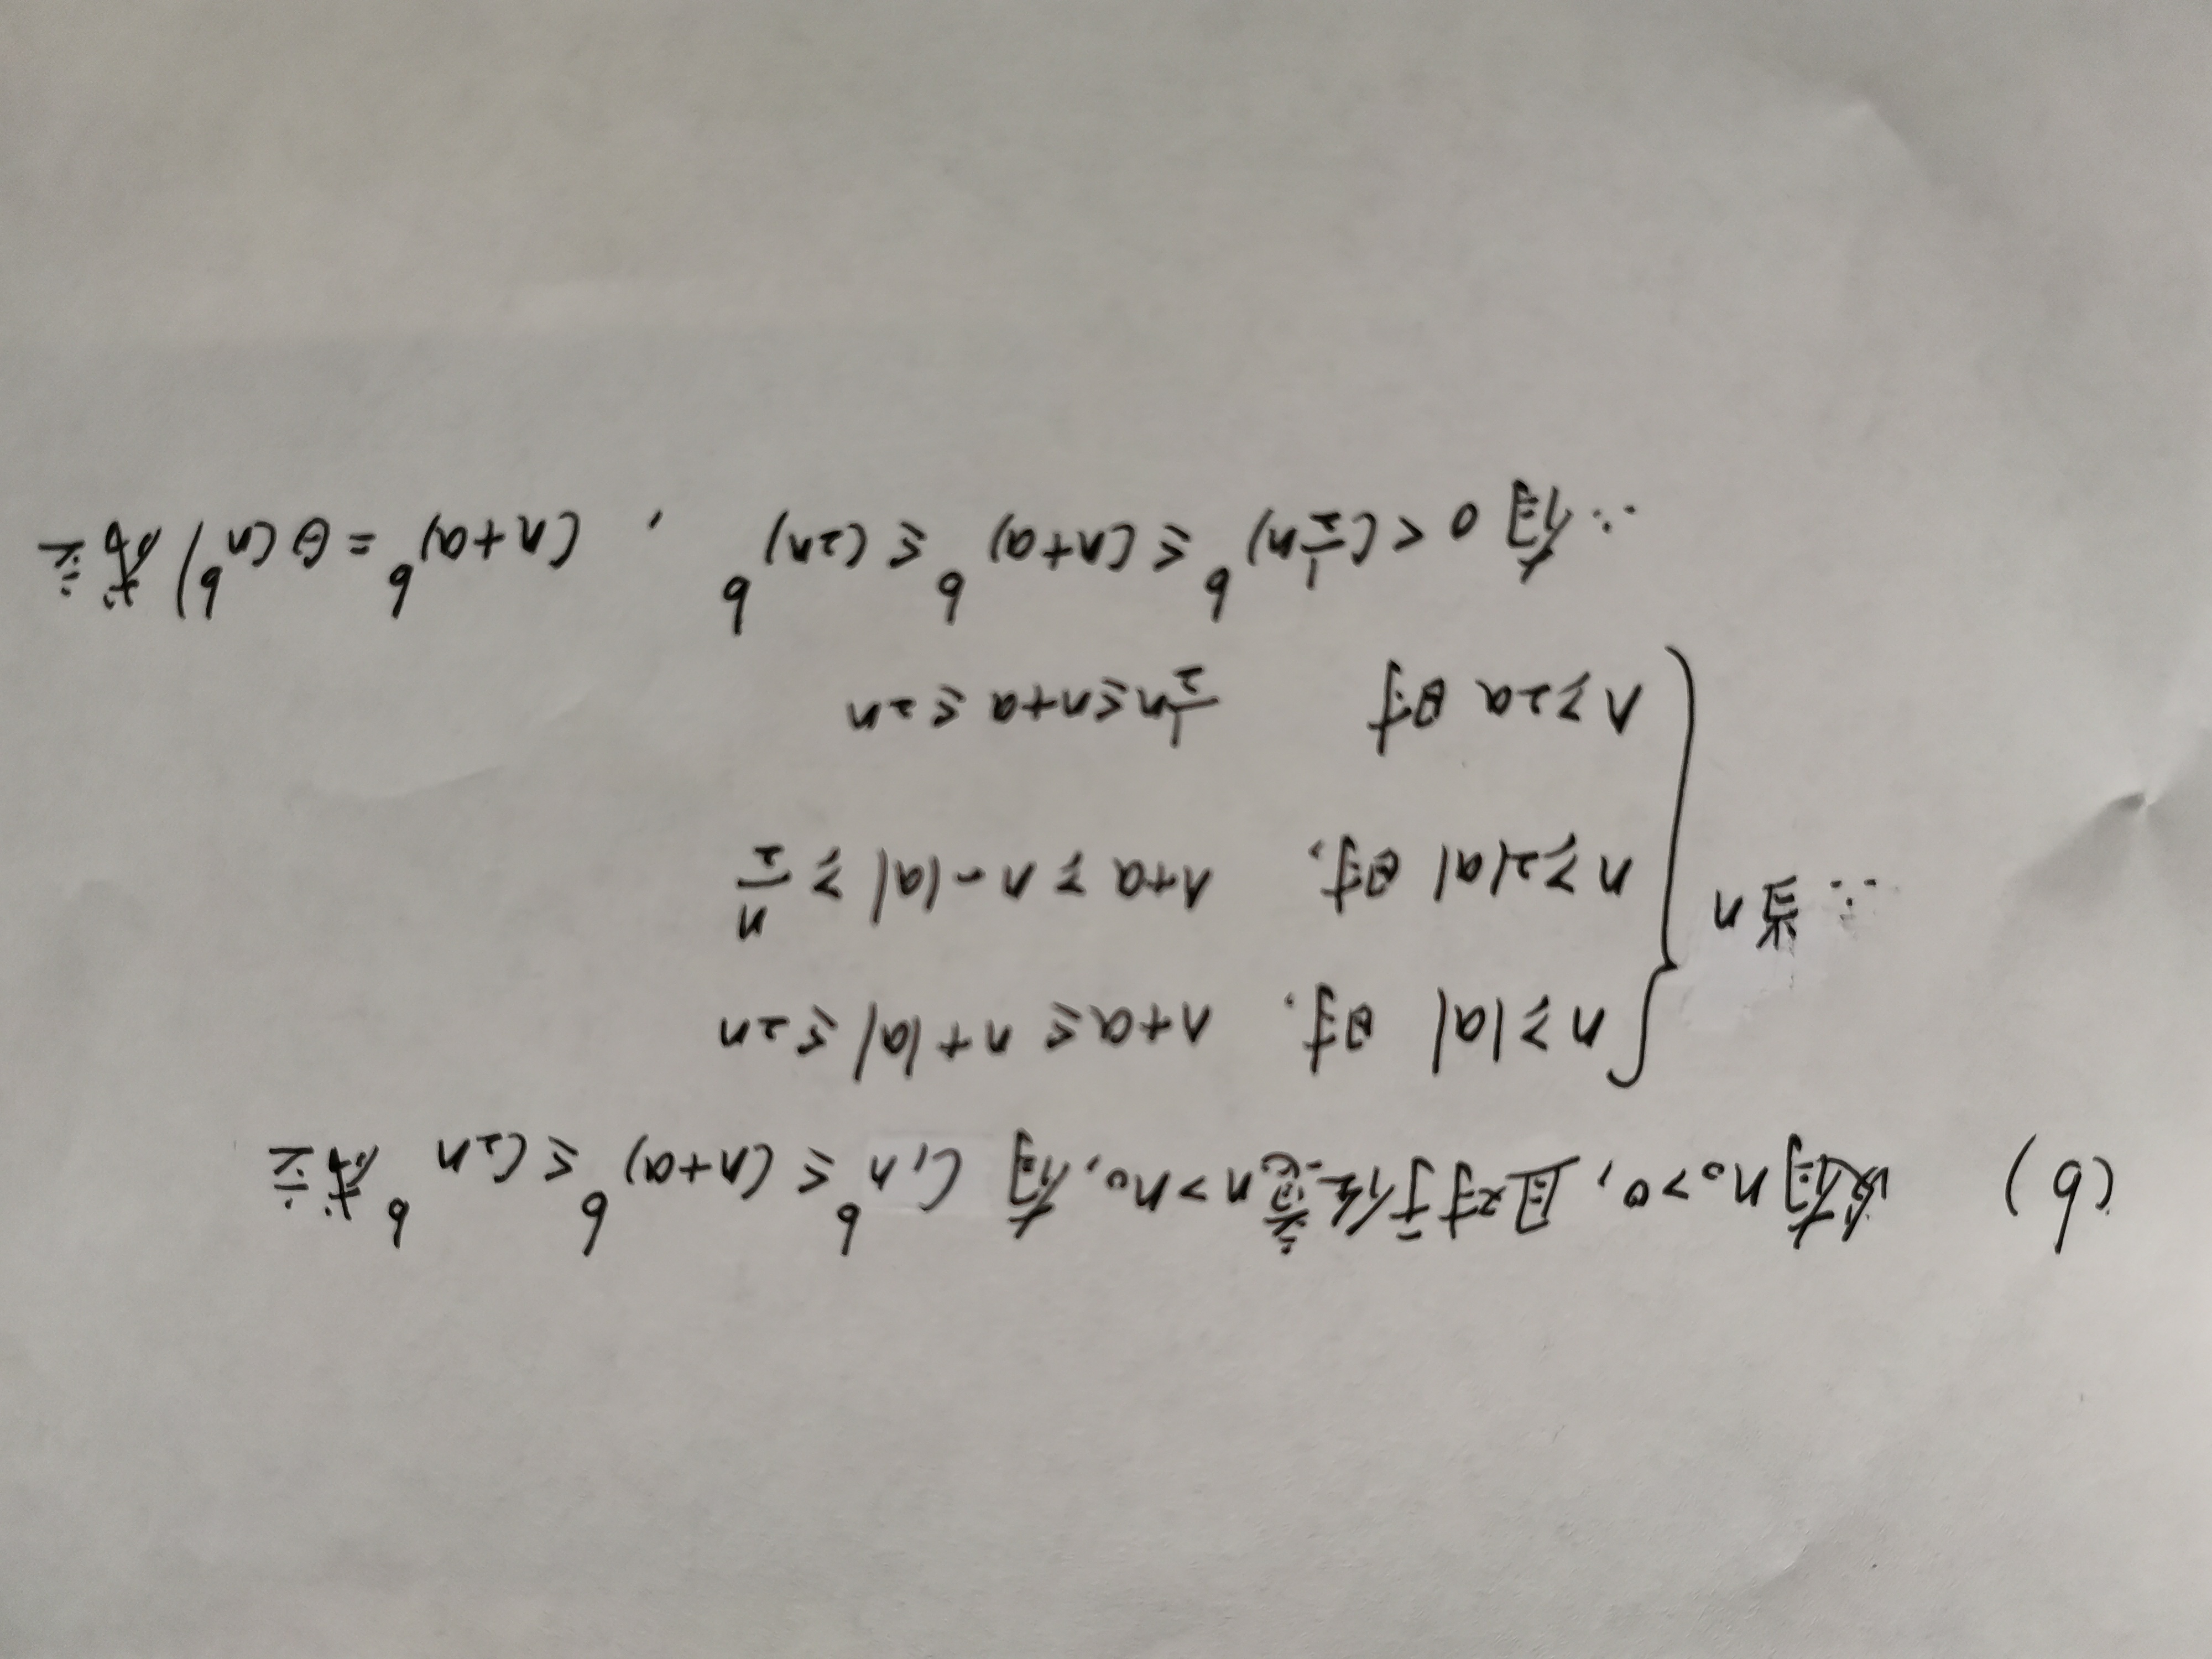 (b) 设有n₀>0,且对于任意n>n₀,有 C₁n^b ≤ (n+a)^b ≤ C₂n^b 成立
n≥|a| 时, n+a ≤ n+|a| ≤ 2n
∴当n
n≥2|a| 时, n+a ≥ n-|a| ≥ n/2
n≥2a 时 1/2n ≤ n+a ≤ 2n
∴有 0 < (1/2n)^b ≤ (n+a)^b ≤ (2n)^b , (n+a)^b = Θ(n^b) 成立